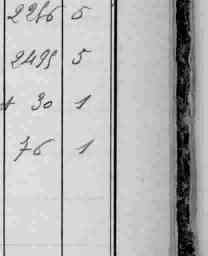 2286 5
2499 5
+ 30 1
76 1